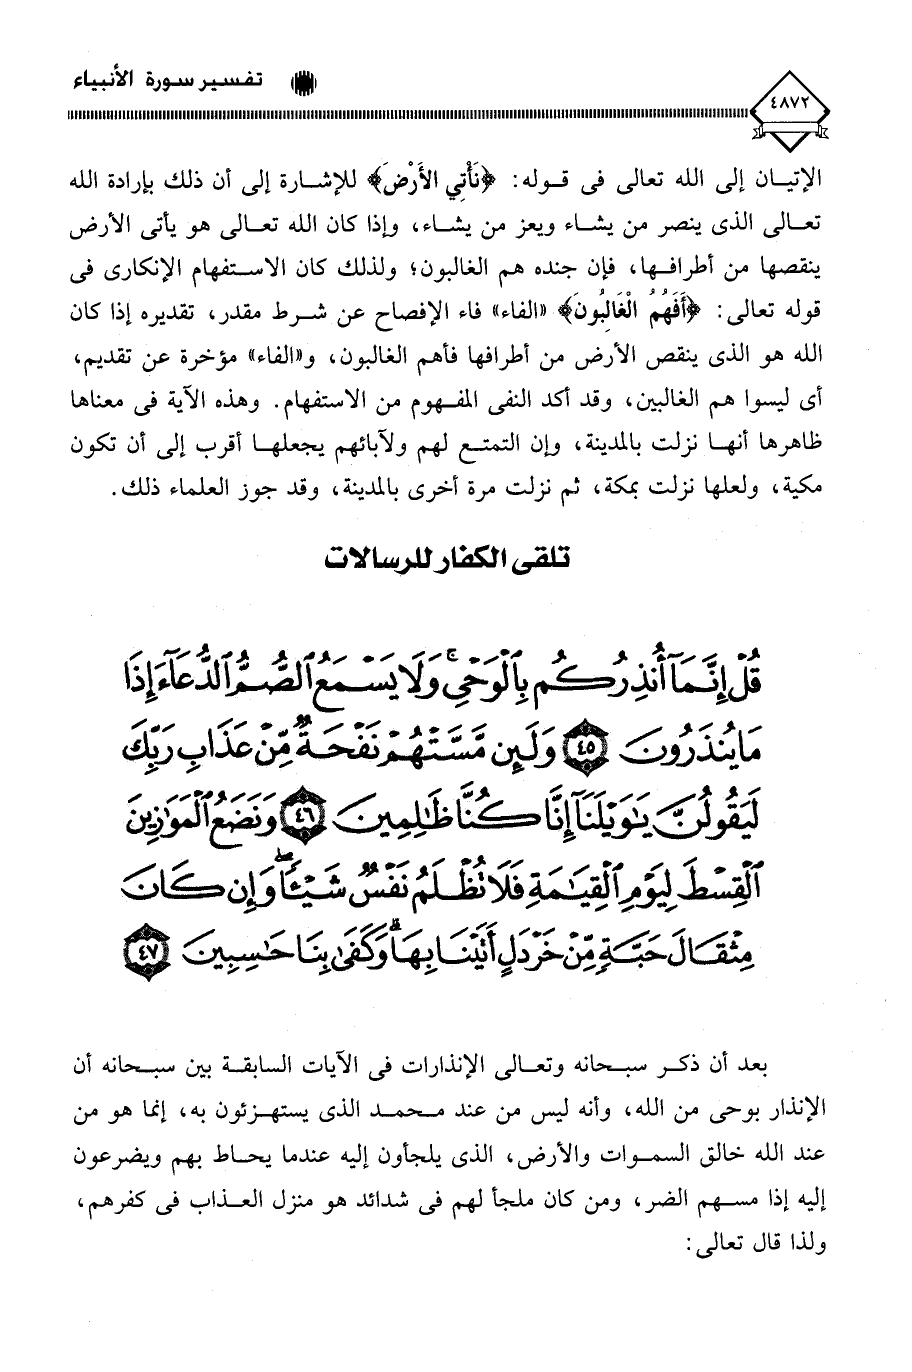 ٤٨٧٢
تفسير سورة الأنبياء
الإتيان إلى الله تعالى فى قوله: ﴿نَأْتِي الأَرْضَ﴾ للإشارة إلى أن ذلك بإرادة الله
تعالى الذى ينصر من يشاء ويعز من يشاء، وإذا كان الله تعالى هو يأتى الأرض
ينقصها من أطرافها، فإن جنده هم الغالبون؛ ولذلك كان الاستفهام الإنكارى فى
قوله تعالى: ﴿أَفَهُمُ الْغَالِبُونَ﴾ «الفاء» فاء الإفصاح عن شرط مقدر، تقديره إذا كان
الله هو الذى ينقص الأرض من أطرافها فأهم الغالبون، و«الفاء» مؤخرة عن تقديم،
أى ليسوا هم الغالبين، وقد أكد النفى المفهوم من الاستفهام. وهذه الآية فى معناها
ظاهرها أنها نزلت بالمدينة، وإن التمتع لهم ولآبائهم يجعلها أقرب إلى أن تكون
مكية، ولعلها نزلت بمكة، ثم نزلت مرة أخرى بالمدينة، وقد جوز العلماء ذلك.
تلقى الكفار للرسالات
قُلْ إِنَّمَآ أُنذِرُكُم بِٱلْوَحْىِ ۚ وَلَا يَسْمَعُ ٱلصُّمُّ ٱلدُّعَآءَ إِذَا
مَا يُنذَرُونَ ٤٥ وَلَئِن مَّسَّتْهُمْ نَفْحَةٌ مِّنْ عَذَابِ رَبِّكَ
لَيَقُولُنَّ يَٰوَيْلَنَآ إِنَّا كُنَّا ظَٰلِمِينَ ٤٦ وَنَضَعُ ٱلْمَوَٰزِينَ
ٱلْقِسْطَ لِيَوْمِ ٱلْقِيَٰمَةِ فَلَا تُظْلَمُ نَفْسٌ شَيْـًٔا ۖ وَإِن كَانَ
مِثْقَالَ حَبَّةٍ مِّنْ خَرْدَلٍ أَتَيْنَا بِهَا ۗ وَكَفَىٰ بِنَا حَٰسِبِينَ ٤٧
بعد أن ذكر سبحانه وتعالى الإنذارات فى الآيات السابقة بين سبحانه أن
الإنذار بوحى من الله، وأنه ليس من عند محمد الذى يستهزئون به، إنما هو من
عند الله خالق السموات والأرض، الذى يلجأون إليه عندما يحاط بهم ويضرعون
إليه إذا مسهم الضر، ومن كان ملجأ لهم فى شدائد هو منزل العذاب فى كفرهم،
ولذا قال تعالى: